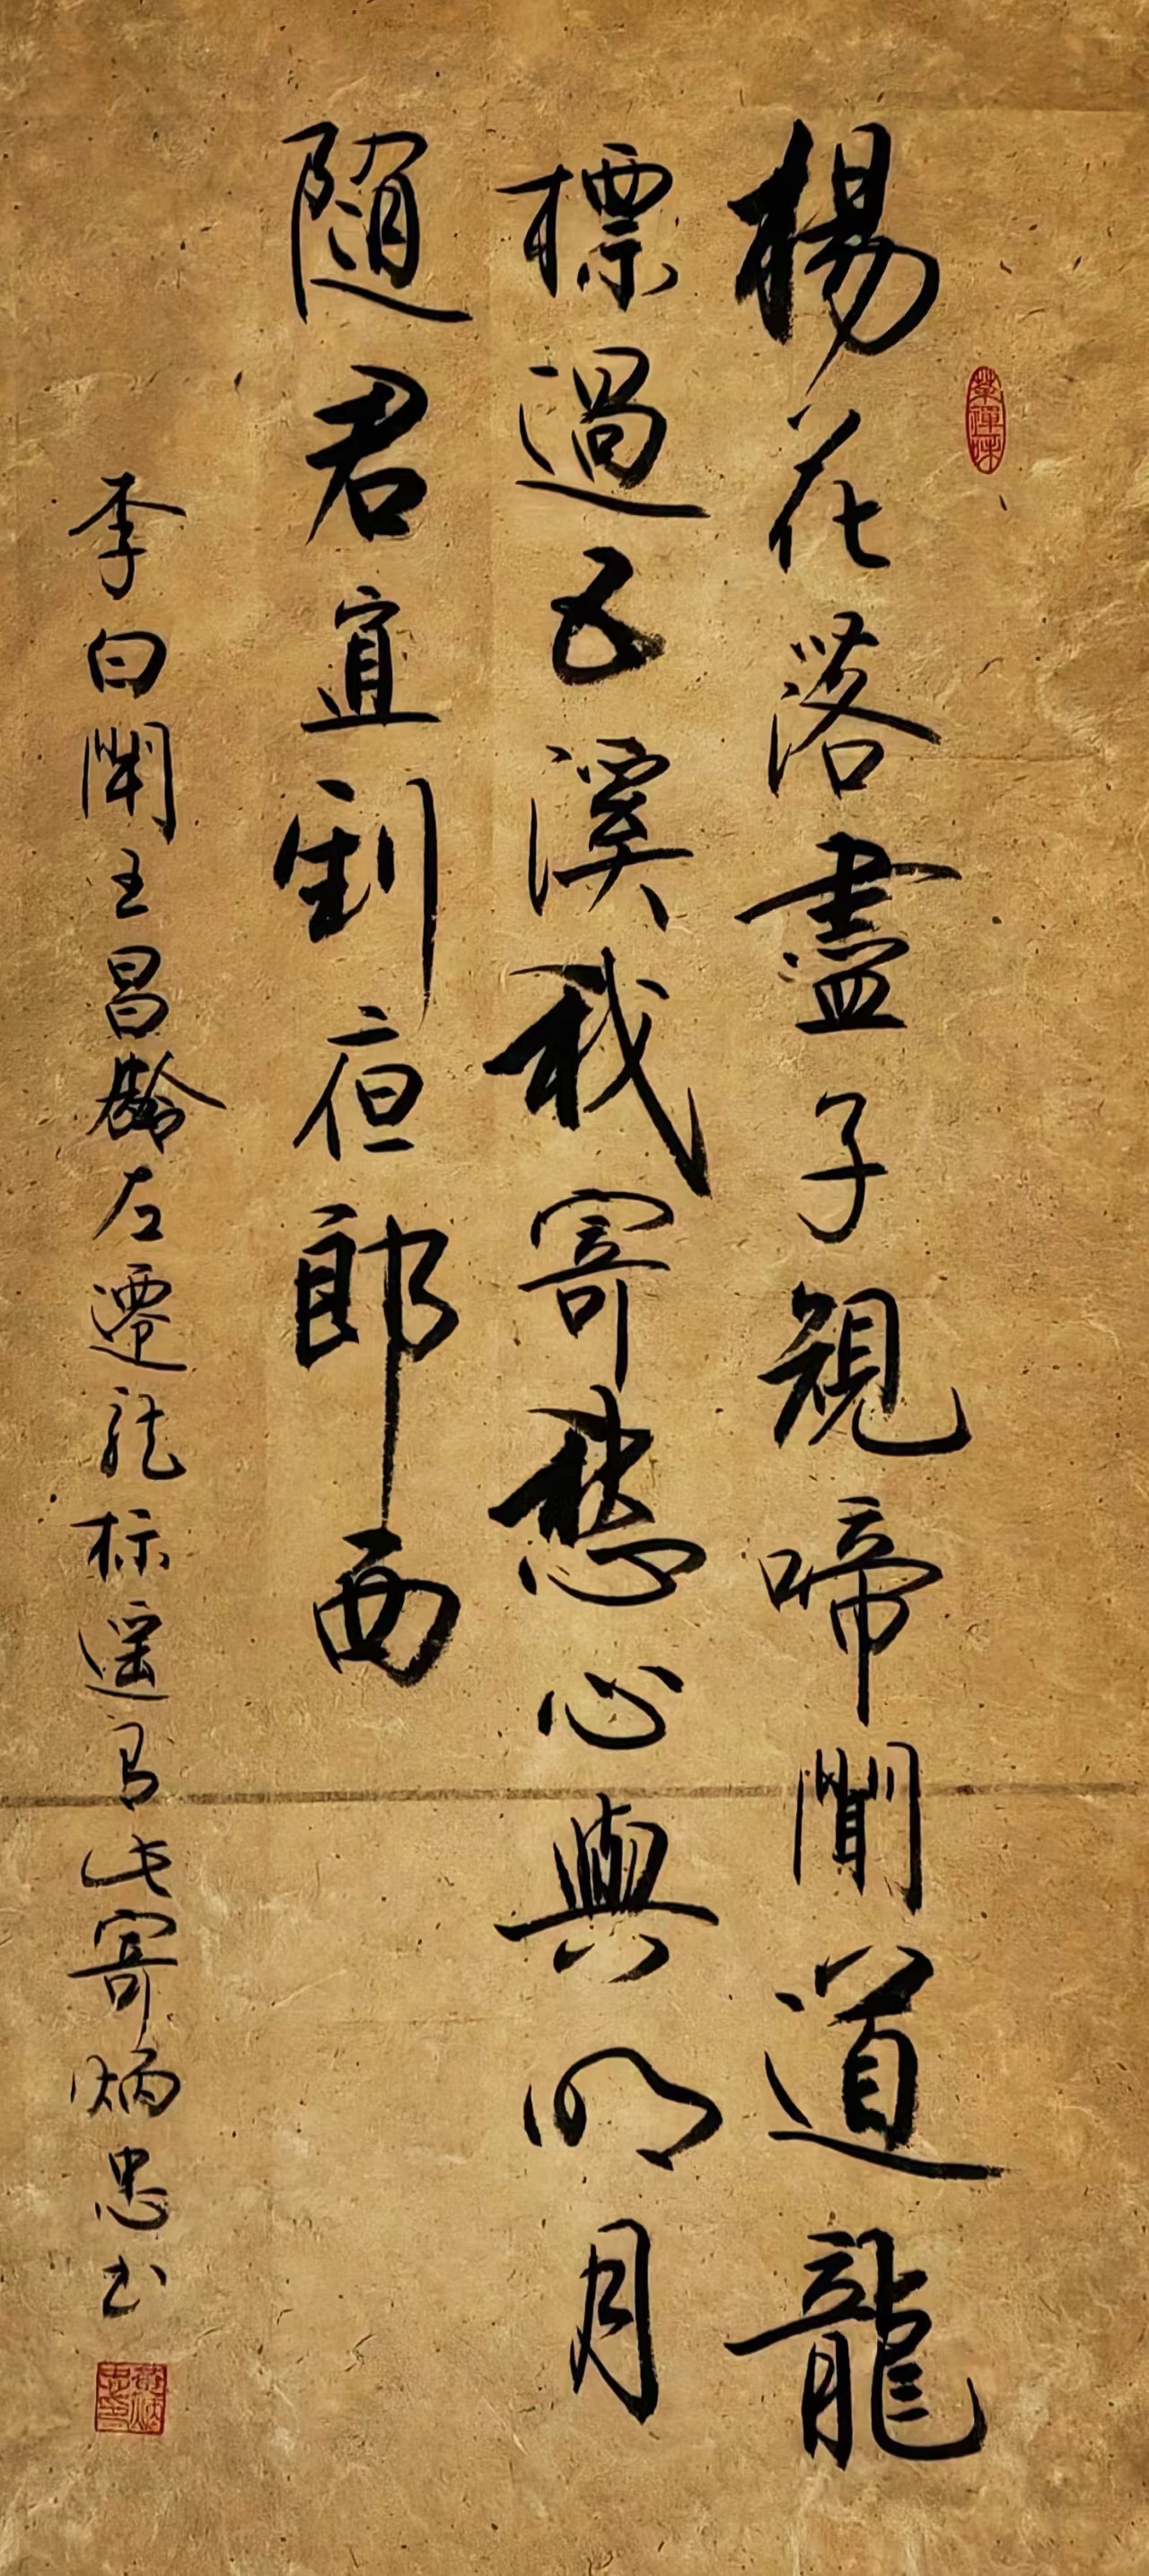 楊花落盡子規啼聞道龍
標過五溪我寄愁心與明月
随君直到夜郎西
李白聞王昌齡左遷龍标遥有此寄炳忠书